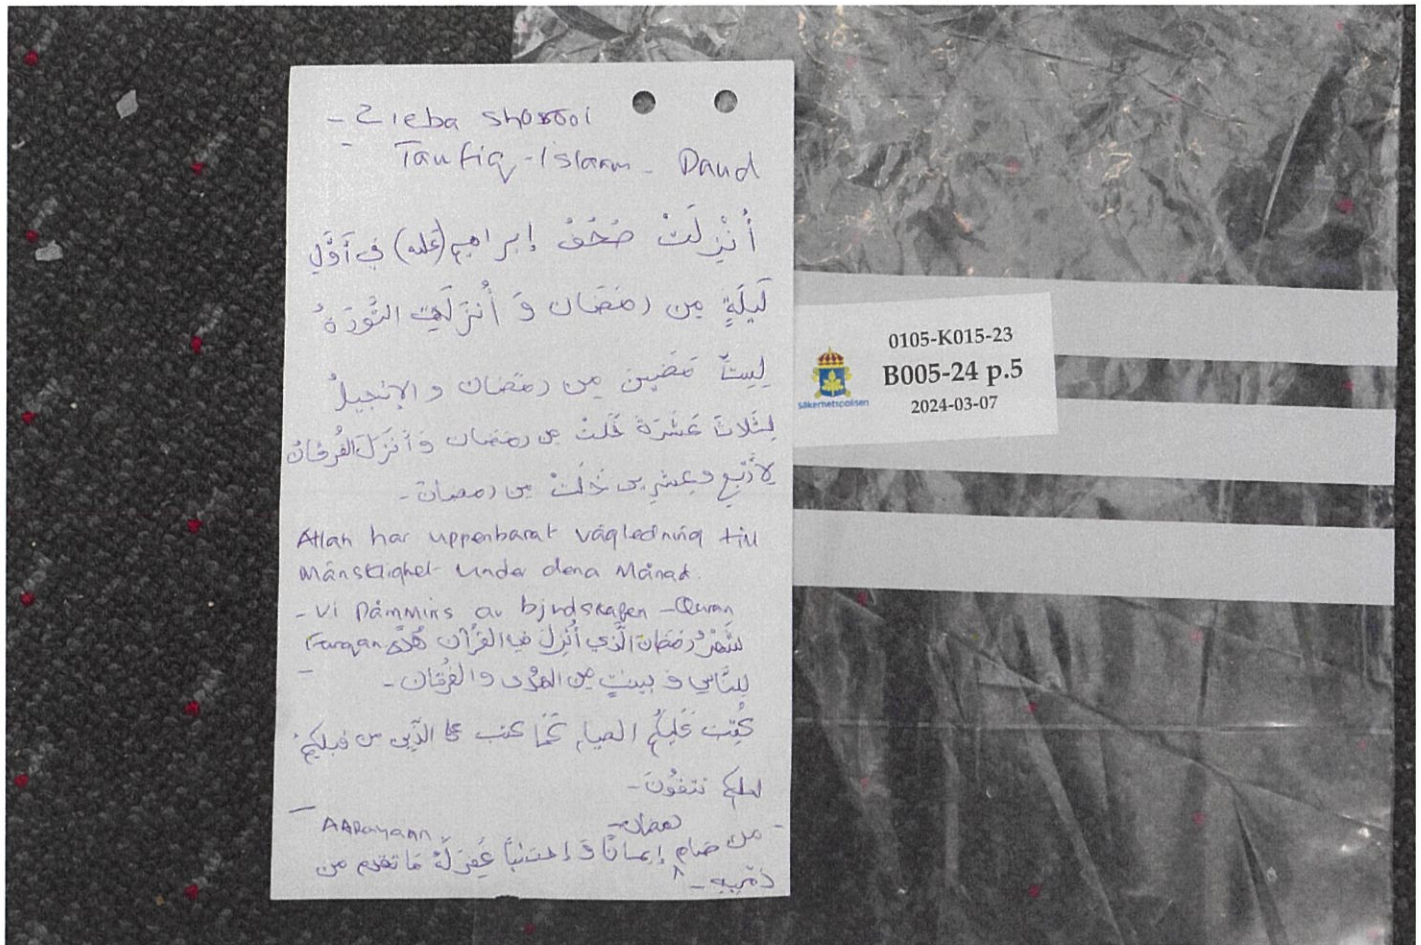 - Zieba shorool
Taufiq - Islaam - Daud
أُنْزِلَتْ صُحُفُ إبراهيم (عليه) في أَوَّلِ
لَيلَةٍ مِن رمَضَان وَ أُنزَلَتِ التَّورَةُ
لِسِتٍّ مَضَينَ مِن رمَضان و الإنجيلُ
لِثَلاثَ عَشَرَةَ خَلَتْ مِن رمَضَان وَأَنزَلَ الفُرقانُ
لِأَرْبَع وعِشرين خَلَتْ مِن رمضان -
Allah har uppenbarat vägledning till
mänsklighet under dena månad.
- Vi påmmins av bjudskapen - Quran
Furqan شَهْرُ رَمَضَانَ الَّذي أُنْزِلَ فيهِ القُرْآن هُدًى
لِلنَّاسِ و بينتٍ مِن الهُدَى والفُرقَان -
كُتِبَ عَلَيكُمُ الصيام كَمَا كتب على الَّذِين من قبلِكُم
لعلكم تتقُونَ -
AARayaan
رمضان
- من صَام إيمانًا وَ احتسَابًا غُفِرَ لَهُ مَا تقدم من
ذَنْبِهِ -
0105-K015-23
B005-24 p.5
2024-03-07
säkerhetspolisen